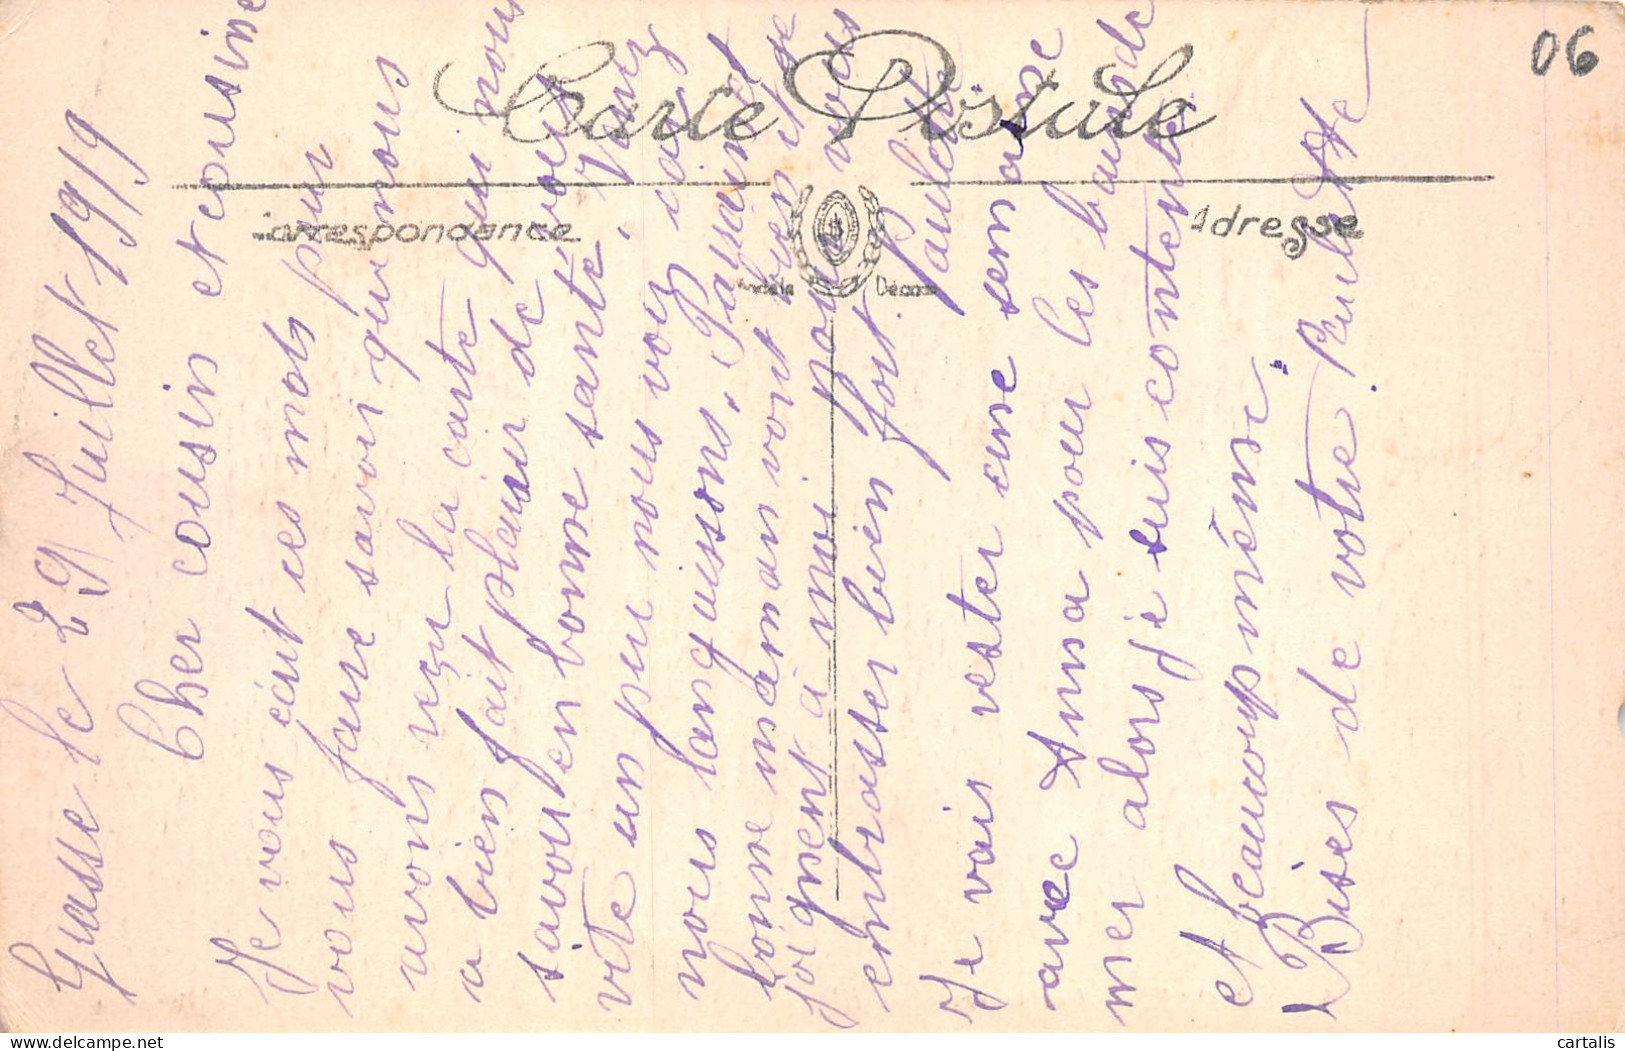 Carte Postale
Correspondance
Adresse
Modèle Déposé
06
Grasse le 29 Juillet 1919
Cher cousin et cousine
Je vous écrit ces mots pour
vous faire savoir que nous
avons reçu la carte qui nous
a bien fait pleisir de vous
savoir en bonne santé. Venez
vite un peu nous voir car
nous languissons. Parraint
bonne maman vont bien et se
joignent à moi pour vous
embrasser bien fort. Paulette
Je vais rester une semaine
avec Anna pour les bains de
mer alors je suis contente
et beaucoup même.
Bises de votre Paulette
cartalis